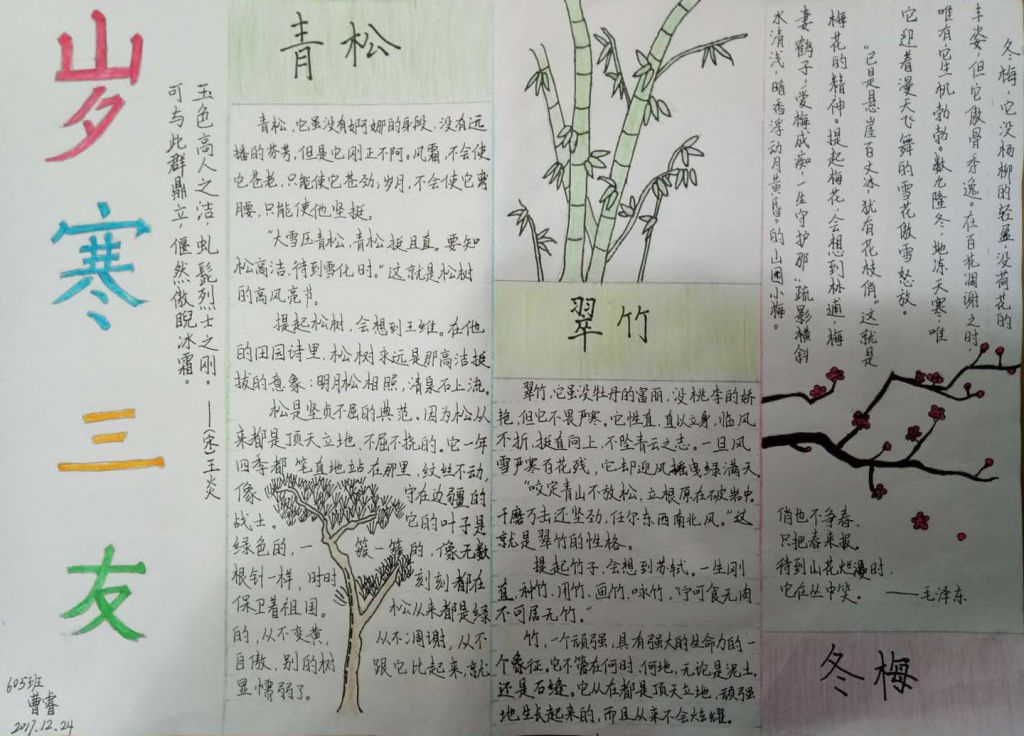 岁寒三友
玉色高人之洁，虬髭烈士之刚。
可与此群鼎立，偃然傲睨冰霜。
——（宋）王炎
605班
曹睿
2017.12.24
青松
青松，它虽没有婀娜的身段，没有远
播的芬芳，但是它刚正不阿。风霜，不会使
它苍老，只能使它苍劲；岁月，不会使它弯
腰，只能使他坚挺。
“大雪压青松，青松挺且直。要知
松高洁，待到雪化时。”这就是松树
的高风亮节。
提起松树，会想到王维。在他
的田园诗里，松树永远是那高洁挺
拔的意象：明月松相照，清泉石上流。
松是坚贞不屈的典范。因为松从
来都是顶天立地、不屈不挠的。它一年
四季都笔直地站在那里，纹丝不动，
像守在边疆的
战士。它的叶子是
绿色的，一簇一簇的，像无数
根针一样，时时刻刻都在
保卫着祖国。松从来都是绿
的，从不变黄，从不凋谢，从不
自傲，别的树跟它比起来，就
显懦弱了。
翠竹
翠竹，它虽没牡丹的富丽，没桃李的娇
艳，但它不畏严寒。它性直，直以立身，临风
不折，挺直向上，不坠青云之志。一旦风
雪严寒百花残，它却迎风摇曳绿满天
“咬定青山不放松，立根原在破岩中。
千磨万击还坚劲，任尔东西南北风。”这
就是翠竹的性格。
提起竹子，会想到苏轼。一生刚
直，种竹、用竹、画竹、咏竹，“宁可食无肉
不可居无竹。”
竹，一个顽强，具有强大的生命力的一
个象征。它不管在何时、何地，无论是泥土，
还是石缝。它从在都是顶天立地、顽强
地生长起来的，而且从来不会炫耀。
冬梅，它没杨柳的轻盈，没荷花的
丰姿，但它傲骨秀逸。在百花凋谢之时，
唯有它生机勃勃。数九隆冬，地冻天寒，唯
它迎着漫天飞舞的雪花傲雪怒放。
“已是悬崖百丈冰，犹有花枝俏。”这就是
梅花的精神。提起梅花，会想到林逋，梅
妻鹤子，爱梅成痴，一生守护那“疏影横斜
水清浅，暗香浮动月黄昏。”的山园小梅。
俏也不争春，
只把春来报。
待到山花烂漫时，
它在丛中笑。——毛泽东
冬梅